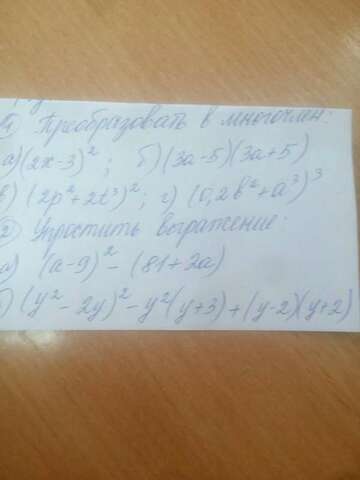 1) Преобразовать в многочлен:
а) (2x-3)²; б) (3a-5)(3a+5)
в) (2p²+2t³)²; г) (0,2b²+a³)³
2) Упростить выражение:
а) (a-9)² - (81+2a)
б) (y²-2y)² - y²(y+3) + (y-2)(y+2)